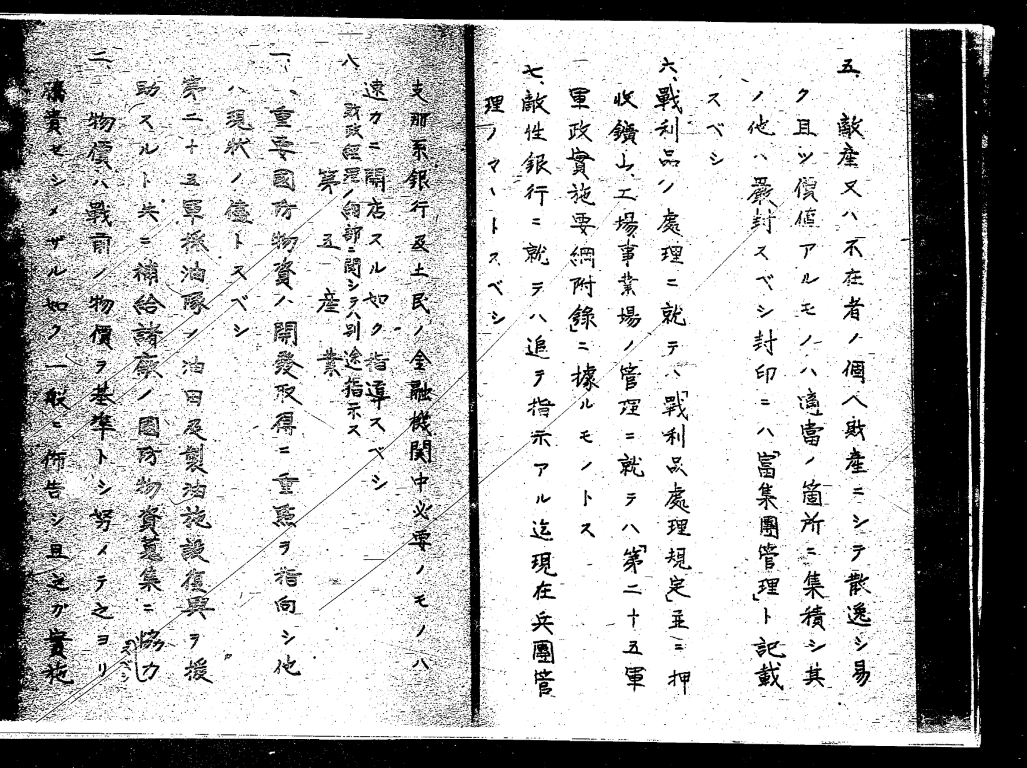 五、敵産又ハ不在者ノ個人財産ニシテ散逸シ易
ク且ツ價値アルモノハ適當ノ箇所ニ集積シ其
ノ他ハ嚴封スベシ封印ニハ「富集團管理」ト記載
スベシ
六、戰利品ノ處理ニ就テハ「戰利品處理規定」並ニ押
收鑛山、工場事業場ノ管理ニ就テハ「第二十五軍
軍政實施要綱附錄」ニ據ルモノトス
七、敵性銀行ニ就テハ追テ指示アル迄現在兵團管
理ノマヽトスベシ
支那系銀行及土民ノ金融機関中必要ノモノハ
速カニ開店スル如ク指導スベシ
八、財政經理ノ細部ニ関シテハ別途指示ス
第五 産業
一、重要國防物資ノ開發取得ニ重點ヲ指向シ他
ハ現狀ノ儘トスベシ
第二十五軍採油隊ノ油田及製油施設復興ヲ援
助スルト共ニ補給諸廠ノ國防物資蒐集ニ協力
スベシ
二、物價ハ戰前ノ物價ヲ基準トシ努メテ之ヨリ
騰貴セシメザル如ク一般ニ佈告シ且之ガ實施